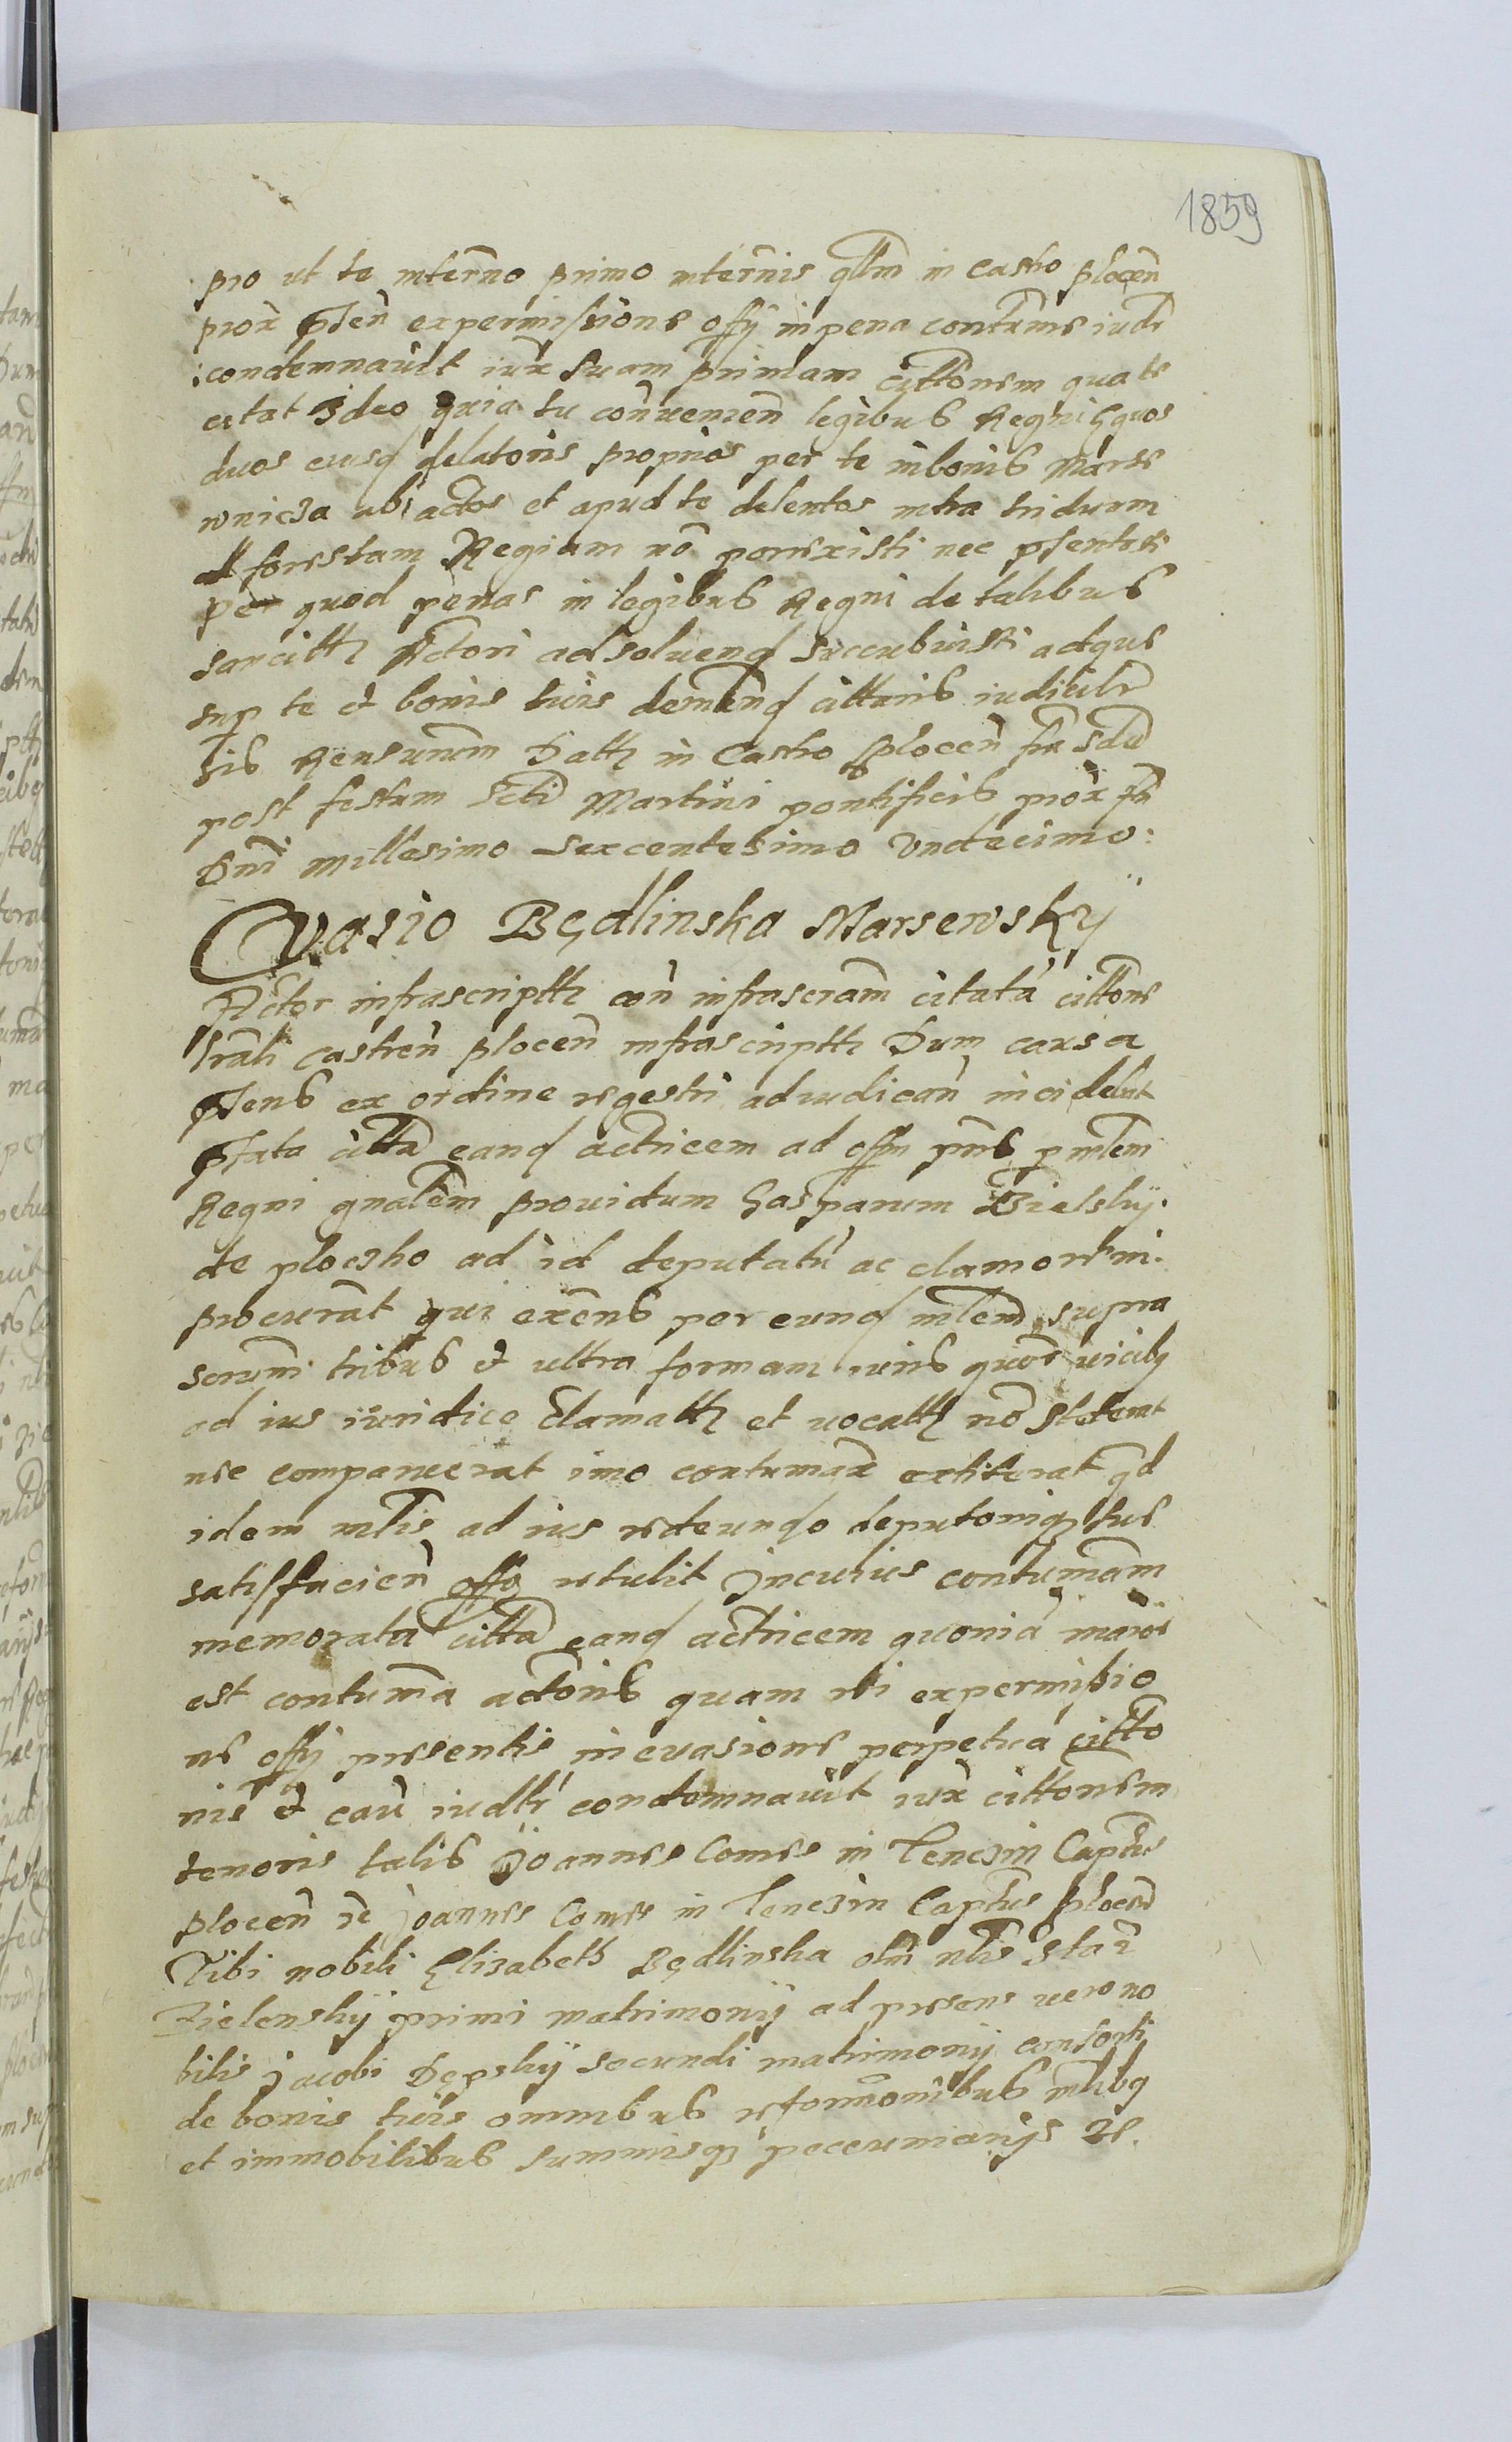 1859
pro ut te mterno primo mternis qllm in Castro plocen
prox pñten expermissione offy in pena contumc iudr
condemnauit iux suam primam cittonem qua te
citat Ideo quia tu conuenien legibus Regni Equos
duos eiusq delatoris proprios per te in bonis Marse
wnicza abactos et apud te detentos intra triduum
ad forestam Regiam nō porrexisti nec pſentasti
per quod penas in legibus Regni de talibus
sancitth Actori ad soluend succubuisti adque
sup te et bonis tuis demand cittaris iudicialr
sis Rensurum Dath in Castro plocen fra 2da
post festum Scti Martini pontificis prox An
Dnī Millesimo sexcentesimo vndecimo:
Euasio Będlinska Marsewsky
Actor infrascriptth con infrascram citatā cittone
lrali castren plocen infrascriptth Dum causa
pñtens ex ordine regestri adiudican incidebat
pfata citta eand actricem ad offm pñs p mlem
Regni gnalem prouidum Gasparum Bielsky
de ploczko ad id deputatū ac clamorem
procurat qui exens per eund mlem supra
scrum tribus et ultra formam iuris quor uicibq
ad ius iuridice clamatth et uocatth nō steterat
nec comparuerat imo contumax extiterat qd
idem mlis ad ius redeundo deputoniqz sue
satisfacien offo retulit In cuius contumam
memorata citta eand actricem quoniā maior
est contuma actoris quam rei expermissio
ne offy presentis in euasione perpetua citto
nis et cau iudlr condemnauit iux cittonem
tenoris talis Joannes Comes in Tenczin Captus
plocen re Joannes Comes in Tenczin Captus plocen
Tibi nobili Elizabeth Będlinska olim nlis Stan
Zielensky primi matrimonij ad presens uero no
bilis Jacobi Dępsky secundi matrimonij consorti
de bonis tuis omnibus reformonibus mlibq
et immobilibus summisqz pecuniarijs Ze.